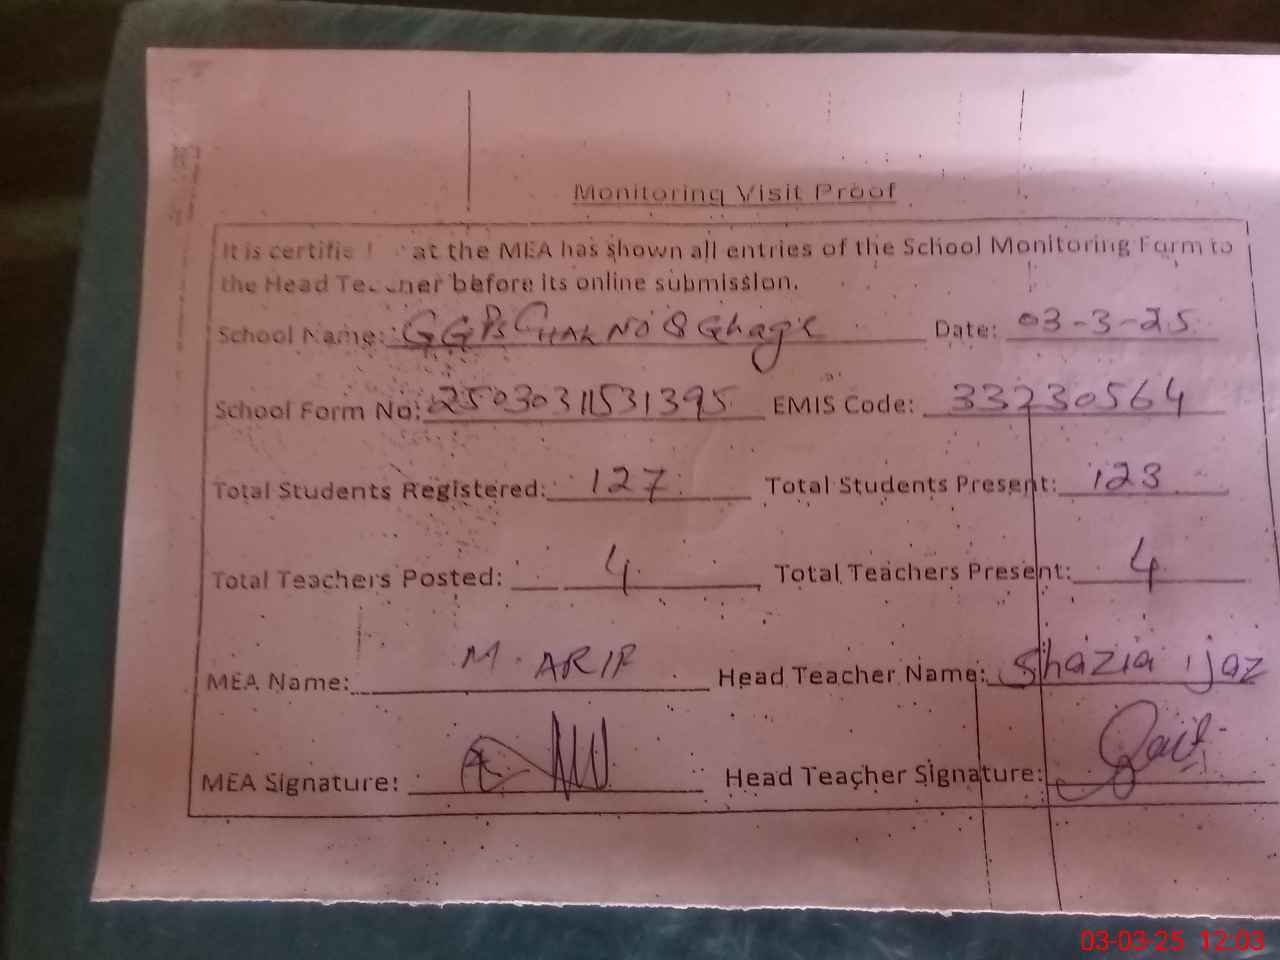 Monitoring Visit Proof
It is certifie at the MEA has shown all entries of the School Monitoring Form to
the Head Teacher before its online submission.
School Name: GGPS CHAK NO 8 Ghage Date: 03-3-25
School Form No: 2503031531395 EMIS Code: 33230564
Total Students Registered: 127 Total Students Present: 123
Total Teachers Posted: 4 Total Teachers Present: 4
MEA Name: M. ARIF Head Teacher Name: Shazia ijaz
MEA Signature: Head Teacher Signature:
03-03-25 12:03